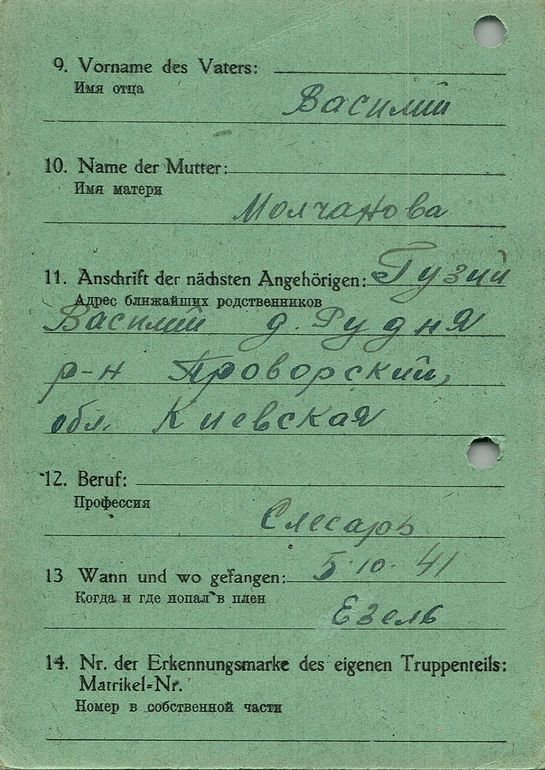 9. Vorname des Vaters:
Имя отца
Василий
10. Name der Mutter:
Имя матери
Молчанова
11. Anschrift der nächsten Angehörigen: Гузий
Адрес ближайших родственников
Василий д. Рудня
р-н Проворский,
обл. Киевская
12. Beruf:
Профессия
Слесарь
13 Wann und wo gefangen: 5.10.41
Когда и где попал в плен
Езель
14. Nr. der Erkennungsmarke des eigenen Truppenteils:
Matrikel-Nr.
Номер в собственной части